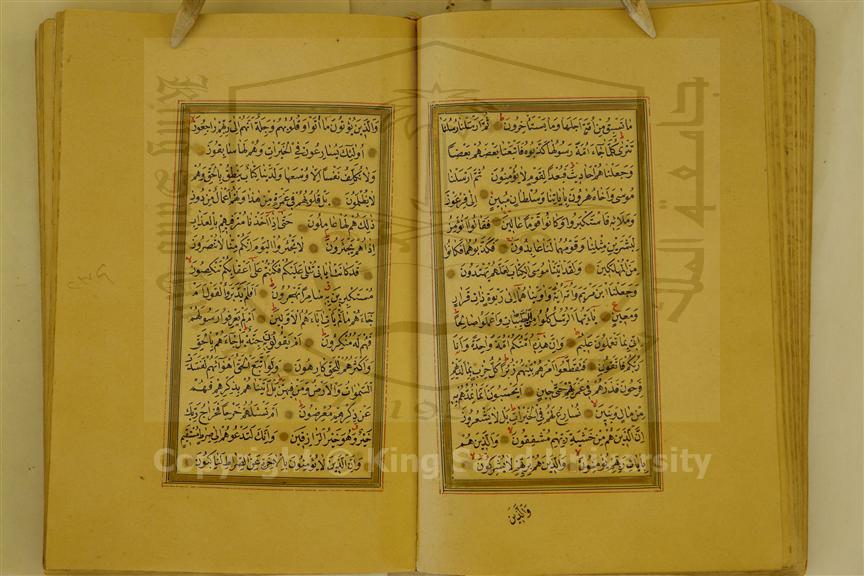 ما تسبق من امة اجلها وما يستاخرون ثم ارسلنا رسلنا
تترى كلما جاء امة رسولها كذبوه فاتبعنا بعضهم بعضا
وجعلناهم احاديث فبعدا لقوم لا يؤمنون ثم ارسلنا
موسى واخاه هرون باياتنا وسلطان مبين الى فرعون
وملائه فاستكبروا وكانوا قوما عالين فقالوا انؤمن
لبشرين مثلنا وقومهما لنا عابدون فكذبوهما فكانوا
من المهلكين ولقد اتينا موسى الكتاب لعلهم يهتدون
وجعلنا ابن مريم وامه اية واويناهما الى ربوة ذات قرار
ومعين يا ايها الرسل كلوا من الطيبات واعملوا صالحا
اني بما تعملون عليم وان هذه امتكم امة واحدة وانا
ربكم فاتقون فتقطعوا امرهم بينهم زبرا كل حزب بما لديهم
فرحون فذرهم في غمرتهم حتى حين ايحسبون انما نمدهم به
من مال وبنين نسارع لهم في الخيرات بل لا يشعرون
ان الذين هم من خشية ربهم مشفقون والذين هم
بايات ربهم يؤمنون والذين هم بربهم لا يشركون
والذين
والذين يؤتون ما اتوا وقلوبهم وجلة انهم الى ربهم راجعون
اولئك يسارعون في الخيرات وهم لها سابقون
ولا نكلف نفسا الا وسعها ولدينا كتاب ينطق بالحق وهم
لا يظلمون بل قلوبهم في غمرة من هذا ولهم اعمال من دون
ذلك هم لها عاملون حتى اذا اخذنا مترفيهم بالعذاب
اذا هم يجئرون لا تجئروا اليوم انكم منا لا تنصرون
قد كانت اياتي تتلى عليكم فكنتم على اعقابكم تنكصون
مستكبرين به سامرا تهجرون افلم يدبروا القول ام
جاءهم ما لم يات اباءهم الاولين ام لم يعرفوا رسولهم
فهم له منكرون ام يقولون به جنة بل جاءهم بالحق
واكثرهم للحق كارهون ولو اتبع الحق اهواءهم لفسدت
السموات والارض ومن فيهن بل اتيناهم بذكرهم فهم
عن ذكرهم معرضون ام تسئلهم خرجا فخراج ربك
خير وهو خير الرازقين وانك لتدعوهم الى صراط مستقيم
وان الذين لا يؤمنون بالاخرة عن الصراط لناكبون
جامعة الملك
King Saud
Copyright © King Saud University